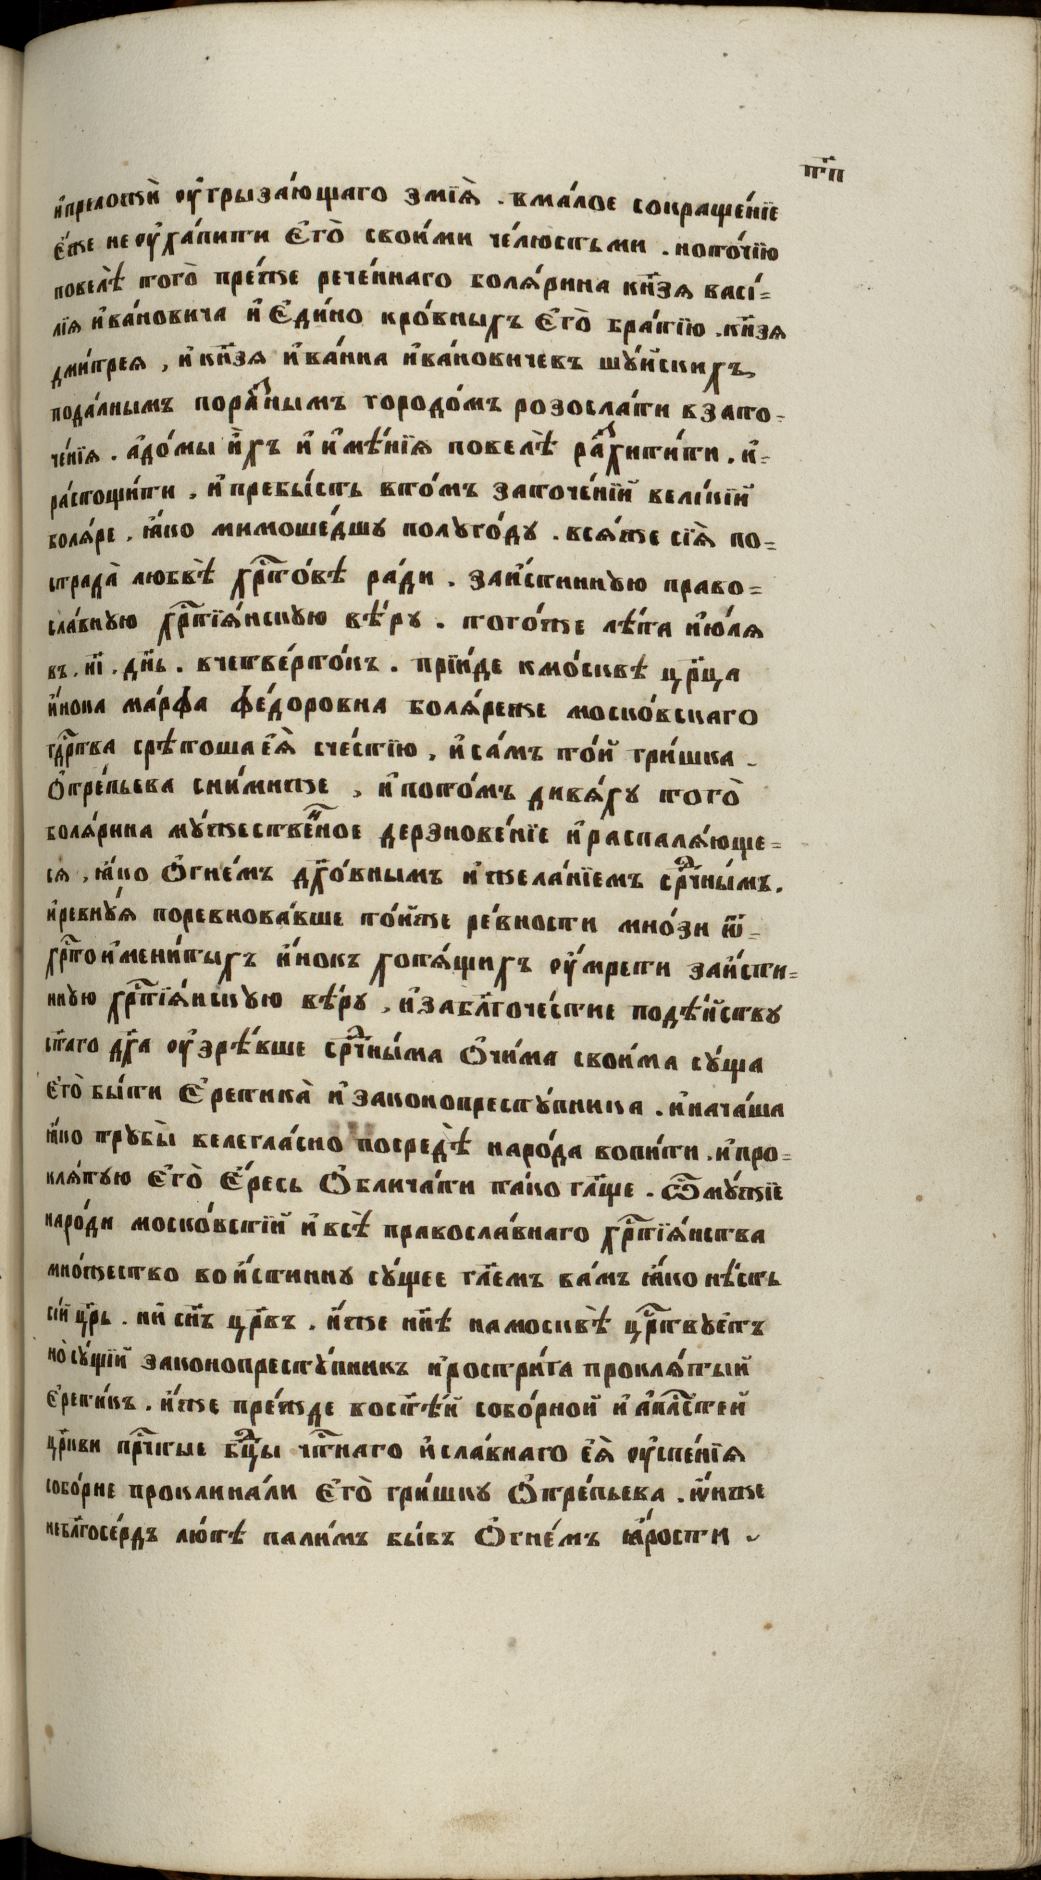 п҃п
и҆преложѝ оу҆грыза́ющаго змїѧ̀ . вма́лое сокраще́нїе
є҆́же не оу҆хапи́ти є҆го̀ свои́ми че́люстьми . нопо́чїю
повелѣ̀ того̀ пре́же рече́ннаго болѧ́рина кн҃зѧ васі́=
лїѧ и҆ва́новича и҆ є҆ди́но кро́вныхъ є҆го̀ бра́тїю . кн҃зѧ
дми́трея , и҆ кн҃зѧ и҆ва́нна и҆ва́новичевъ шу́йскихъ ,
пода́лнымъ пора́знымъ городо́мъ розосла́ти в зато=
че́нїѧ . а҆до́мы и҆̀хъ и҆ и҆мѣ́нїѧ повелѣ̀ ра́схити́ти . и҆=
расто́щи́ти , и҆ пребы́сть вто́мъ заточе́нїй вели́кїй
болѧ́ре . ꙗ҆́ко мимоше́дшу полуго́ду . всѧ́же сїѧ̀ по=
страда̀ любвѐ хрⷭ҇то́вѣ ра́ди . заи́стинную право=
сла́вную хрⷭ҇тїѧ́нскую вѣ́ру . того́же лѣ́та и҆ю́лѧ
въ . и҃і . дн҃ь . вчетве́рто́къ . прїи́де кмо́сквѣ цр҃ца
и҆́нока ма́рфа фе́доровна болѧ́реже моско́вскаго
гдⷭ҇ртва срѣ́тоша є҆ѧ̀ сче́стїю , и҆ са́мъ то́й гри́шка
ѻ҆тре́пьева сни́миже , и҆ пото́мъ дивѧ́ху того̀
болѧ́рина му́жестве́нное дерзнове́нїе и҆ распалѧ́юще=
сѧ , ꙗ҆́ко ѻ҆гне́мъ дх҃о́внымъ и҆ жела́нїемъ срⷣчны́мъ .
и҆ревну́ѧ поревнова́вше то́йже ре́вности мно́зи ѿ=
хрⷭ҇тои҆мени́тыхъ и҆́нокъ хотѧ́щихъ оу҆́мрети заи́сти=
нную хрⷭ҇тїѧ́нскую вѣ́ру , и҆ забл҃гоче́стие подѣ́йству
ст҃аго дх҃а оу҆зрѣ́вше срⷣчны́ма ѻ҆чи́ма свои́ма су́ща
є҆го̀ бы́ти є҆ретика̀ и҆ законопресту́пника . и҆ нача́ша
ꙗ҆́ко трубы̀ велегла́сно посредѣ̀ наро́да вопи́ти . и҆ про=
клѧ́тую є҆го̀ є҆́ресь ѻ҆блича́ти та́ко гл҃ще . ѽму́жїе
наро́ди моско́встїй и҆ всѐ правосла́внаго хрⷭ҇тїѧ́нства
мно́жество вои́стинну су́щее гл҃емъ ва́мъ ꙗ҆́ко нѣ́сть
сі́й цр҃ь . ни́ сн҃ъ цр҃въ . и҆́же нн҃ѣ намосквѣ̀ црⷭ҇тву́етъ
но̀ су́щїй законопресту́пникъ и҆ростри́га проклѧ́тый
є҆рети́къ . и҆́же пре́жде вост҃ѣ́й собо́рной и҆ а҆пⷭ҇лстей
цр҃кви прⷭ҇чтые бцⷣы чтⷭ҇наго и҆ сла́внаго є҆ѧ̀ оу҆спе́нїѧ
собо́рне проклина́ли є҆го̀ гри́шку ѻ҆тре́пьева . ѡ҆́нже
небл҃госе́рдъ лю́тѣ пали́мъ бы́въ ѻ҆гне́мъ ꙗ҆́рости